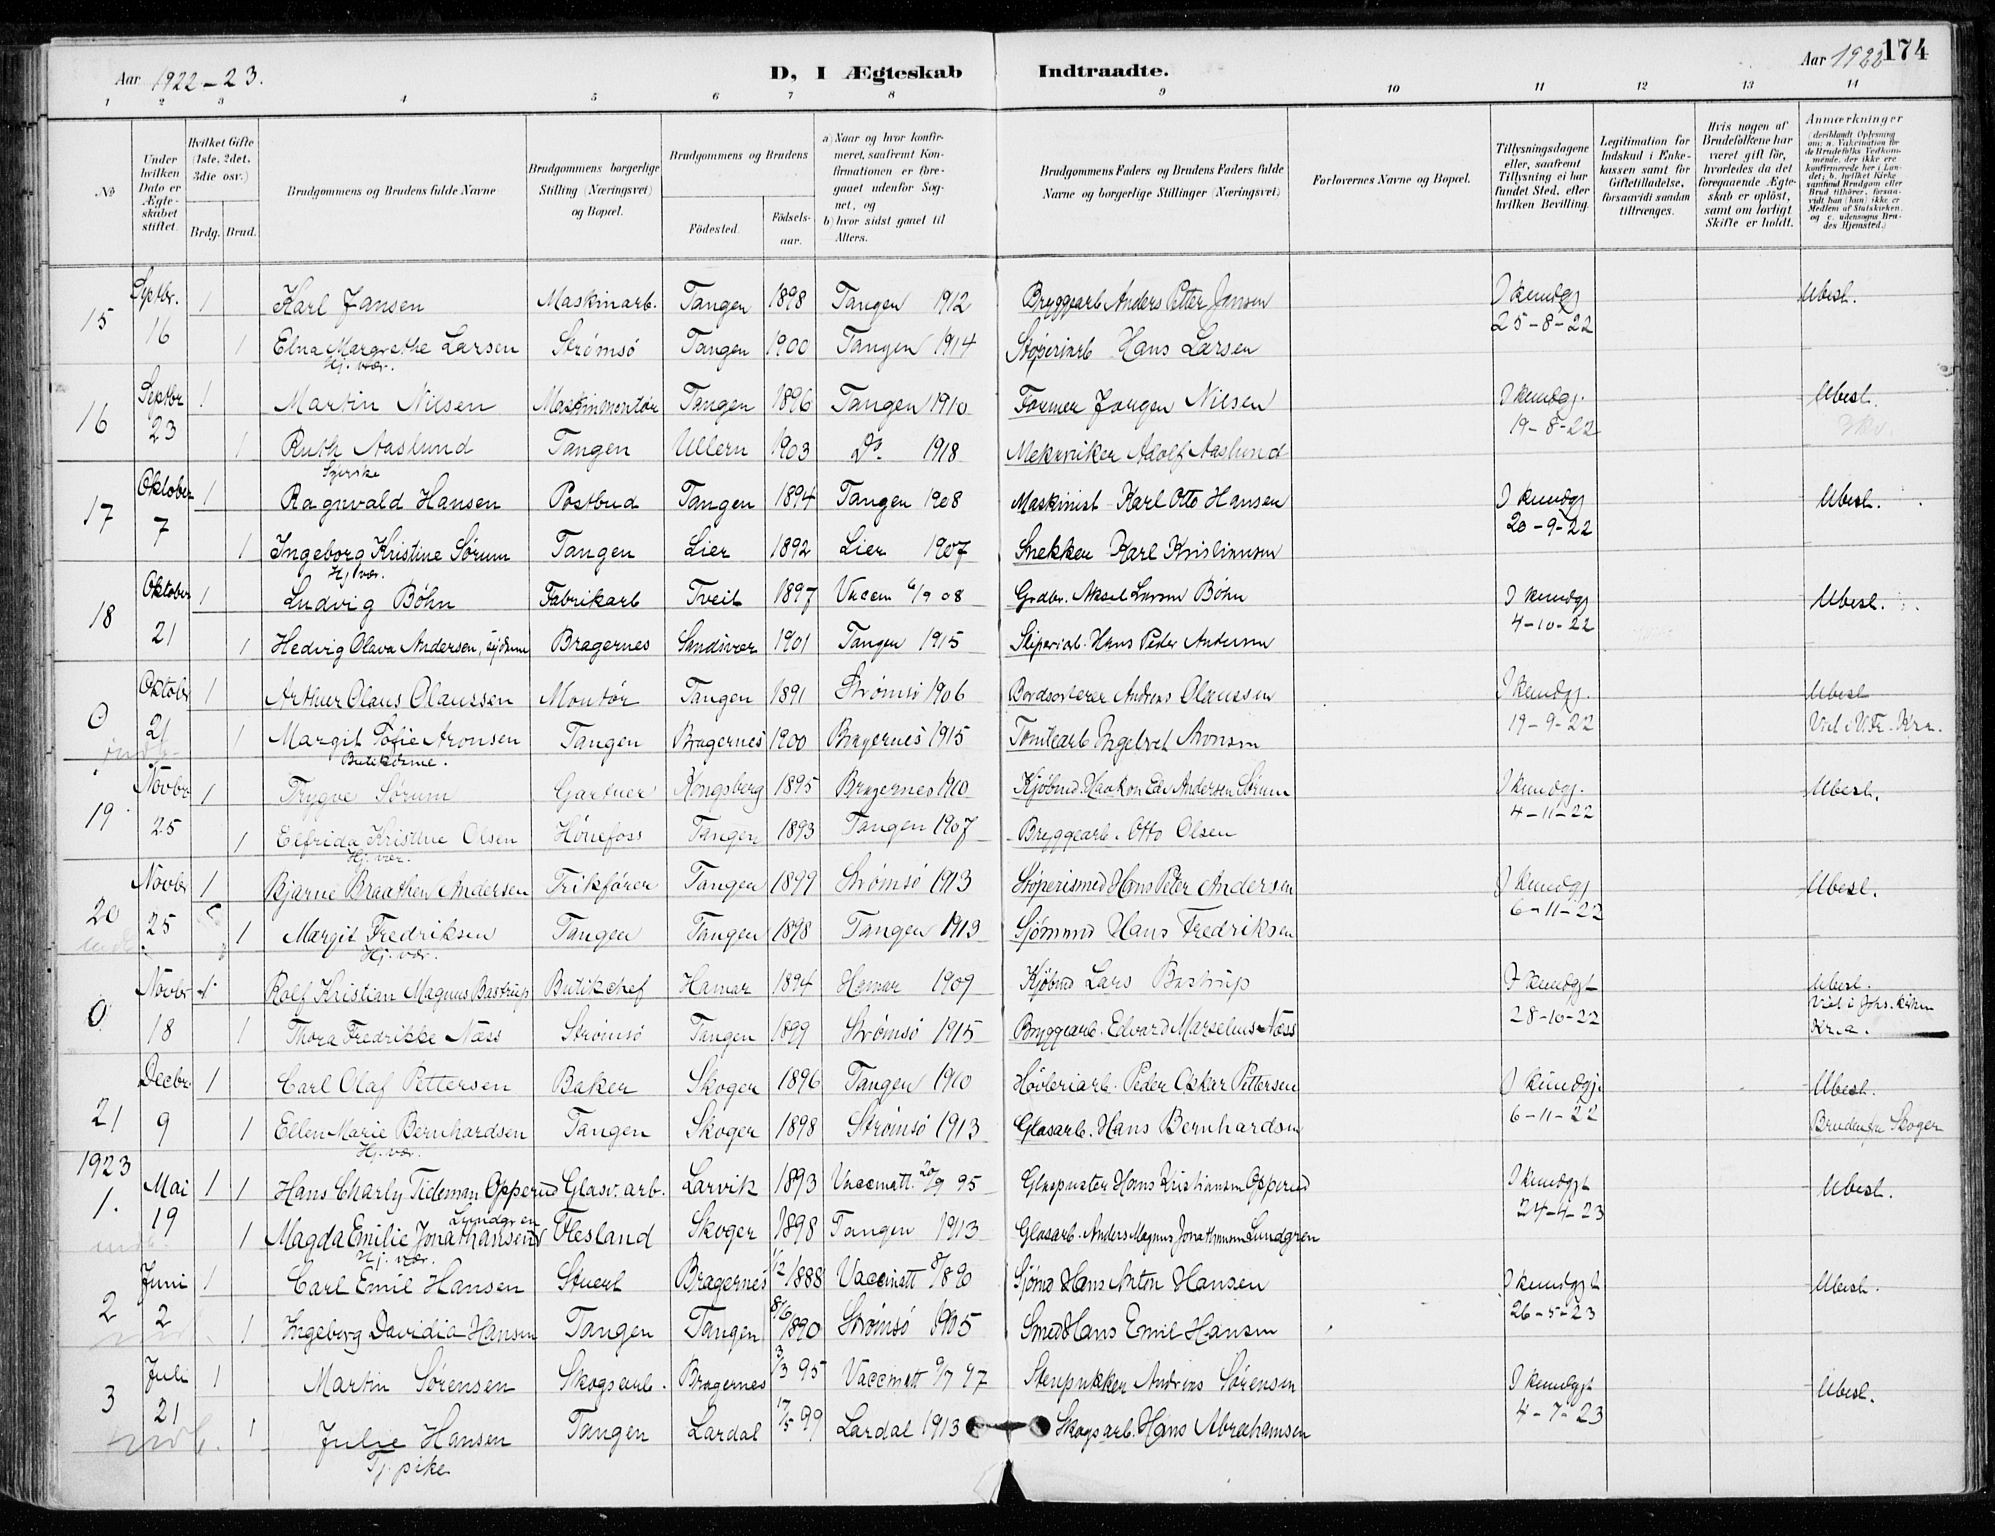 Aar 1922-23.
D, I Ægteskab Indtraadte.
Aar 1922 174
1 2 3 4 5 6 7 8 9 10 11 12 13 14
No
Under hvilken Dato er Ægteskabet stiftet.
Hvilket Gifte (1ste, 2det, 3die osv.)
Brdg. Brud.
Brudgommens og Brudens fulde Navne
Brudgommens borgerlige Stilling (Næringsvei) og Bopæl.
Brudgommens og Brudens
Födested. Födselsaar.
a) Naar og hvor konfirmeret, saafremt Konfirmationen er foregaaet udenfor Sognet, og
b) hvor sidst gaaet til Alters.
Brudgommens Faders og Brudens Faders fulde Navne og borgerlige Stillinger (Næringsvei)
Forlovernes Navne og Bopæl.
Tillysningsdagene eller, saafremt Tillysning ei har fundet Sted, efter hvilken Bevilling.
Legitimation for Indskud i Enkekassen samt for Giftetilladelse, forsaavidt saadan tiltrænges.
Hvis nogen af Brudefolkene har været gift för, hvorledes da det foregaaende Ægteskab er oplöst, samt om lovligt Skifte er holdt.
Anmærkninger (deriblandt Oplysning om; a. Vakcination for de Brudefolks Vedkommende, der ikke ere konfirmerede her i Landet; b. hvilket Kirkesamfund Brudgom eller Brud tilhörer, forsaavidt han (hun) ikke er Medlem af Statskirken. og c. udensogns Brudes Hjemsted.)
15 Septbr. 16 1 Karl Jansen Maskinarb. Tangen 1898 Tangen 1912 Bryggearb Anders Petter Jansen I kundgj 25-8-22 Ubesl.
1 Elna Margrethe Larsen Strømsö Tangen 1900 Tangen 1914 Støperiarb Hans Larsen
Hj. vær.
16 Septbr 23 1 Martin Nilsen Maskinmontør Tangen 1896 Tangen 1910 Former Jørgen Nilsen I kundgj. 19-8-22 Ubesl.
1 Ruth Aaslund Tangen Ullern 1903 Do. 1918 Mekaniker Adolf Aaslund
Syerske
17 Oktober 7 1 Ragnvald Hansen Postbud Tangen 1894 Tangen 1908 Maskinist Karl Otto Hansen I kundgj 20-9-22 Ubesl.
1 Ingeborg Kristine Sørum Tangen Lier 1892 Lier 1907 Snekker Karl Kristiansen
Hj vær.
18 Oktober 21 1 Ludvig Bøhn Fabrikarb Tveit 1897 Vaccin 6/9 08 Grdbr. Aksel Larsen Bøhn I kundgj 4-10-22 Ubesl.
1 Hedvig Olava Andersen, Bragernes Sandsvær 1901 Tangen 1915 Hans Peder Andersen
0 Oktobr 21 1 Arthur Olaus Olaussen Montør Tangen 1891 Strømsö 1906 Bordsorterer Andreas Olaussen I kundgj. 19-9-22 Ubesl
1 Margit Sofie Aronsen Tangen Bragernes 1900 Bragernes 1915 Tomtearb Ingebret Aronsen Viet i V.Fr. Kra.
Butikdame.
19 Novbr 25 1 Trygve Sørum Gartner Kongsberg 1895 Bragernes 1910 Kjøbmd. Haakon Edv Andersen Sørum I kundgj. 4-11-22 Ubesl.
1 Elfrida Kristine Olsen Hönefoss Tangen 1893 Tangen 1907 Bryggearb. Otto Olsen
Hj. vær.
20 Novbr 25 1 Bjarne Braathen Andersen Trikfører Tangen 1899 Strømsö 1913 Støperismed Hans Peter Andersen I kundgj 6-11-22 Ubesl.
1 Margit Fredriksen Tangen Tangen 1898 Tangen 1913 Sjømand Hans Fredriksen
Hj. vær.
0 Novbr 18 1 Rolf Kristian Magnus Bastrup Butikchef Hamar 1894 Hamar 1909 Kjøbmd Lars Bastrup I kundgjt 28-10-22 Ubesl.
1 Thora Fredrikke Næss Strømsö Tangen 1899 Strømsö 1915 Bryggearb. Edvard Marselius Næss Viet i Johs. kirken Kr.a.
21 Decbr. 9 1 Carl Olaf Pettersen Baker Skoger 1896 Tangen 1910 Høvleriarb. Peder Oskar Pettersen I kundgj. 6-11-22 Ubesl.
1 Ellen Marie Bernhardsen Tangen Skoger 1898 Strømsö 1913 Glasarb. Hans Bernhardsen Bruden fra Skoger
Hj. vær.
1923
1. Mai 19 1 1 Hans Charly Tideman Opperud Glasv. arb. Larvik 1893 Vaccinatt. 20/9 95 Glaspuster Hans Kristiansen Opperud I kundgjt 24-4-23 Ubesl.
Lundgren
1 Magda Emilie Jonathansen Flesland Skoger 1898 Tangen 1913 Glasarb. Anders Magnus Jonathansen Lundgren
Hj. vær.
2 Juni 2 1 Carl Emil Hansen Stuert Bragernes 1/2 1888 Vaccinatt 8/8 90 Sjømd Hans Anton Hansen I kundgjt 26-5-23 Ubesl.
1 Ingeborg Davidia Hansen Tangen Tangen 8/6 1890 Strømsö 1905 Smed Hans Emil Hansen
3 Juli 21 1 Martin Sørensen Skogsarb. Bragernes 3/3 95 Vaccinatt 9/7 97 Stenpukker Andreas Sørensen I kundgjt 4-7-23 Ubesl.
1 Julie Hansen Tangen Lardal 17/5 99 Lardal 1913 Skogsarb. Hans Abrahamsen
Tj. pike